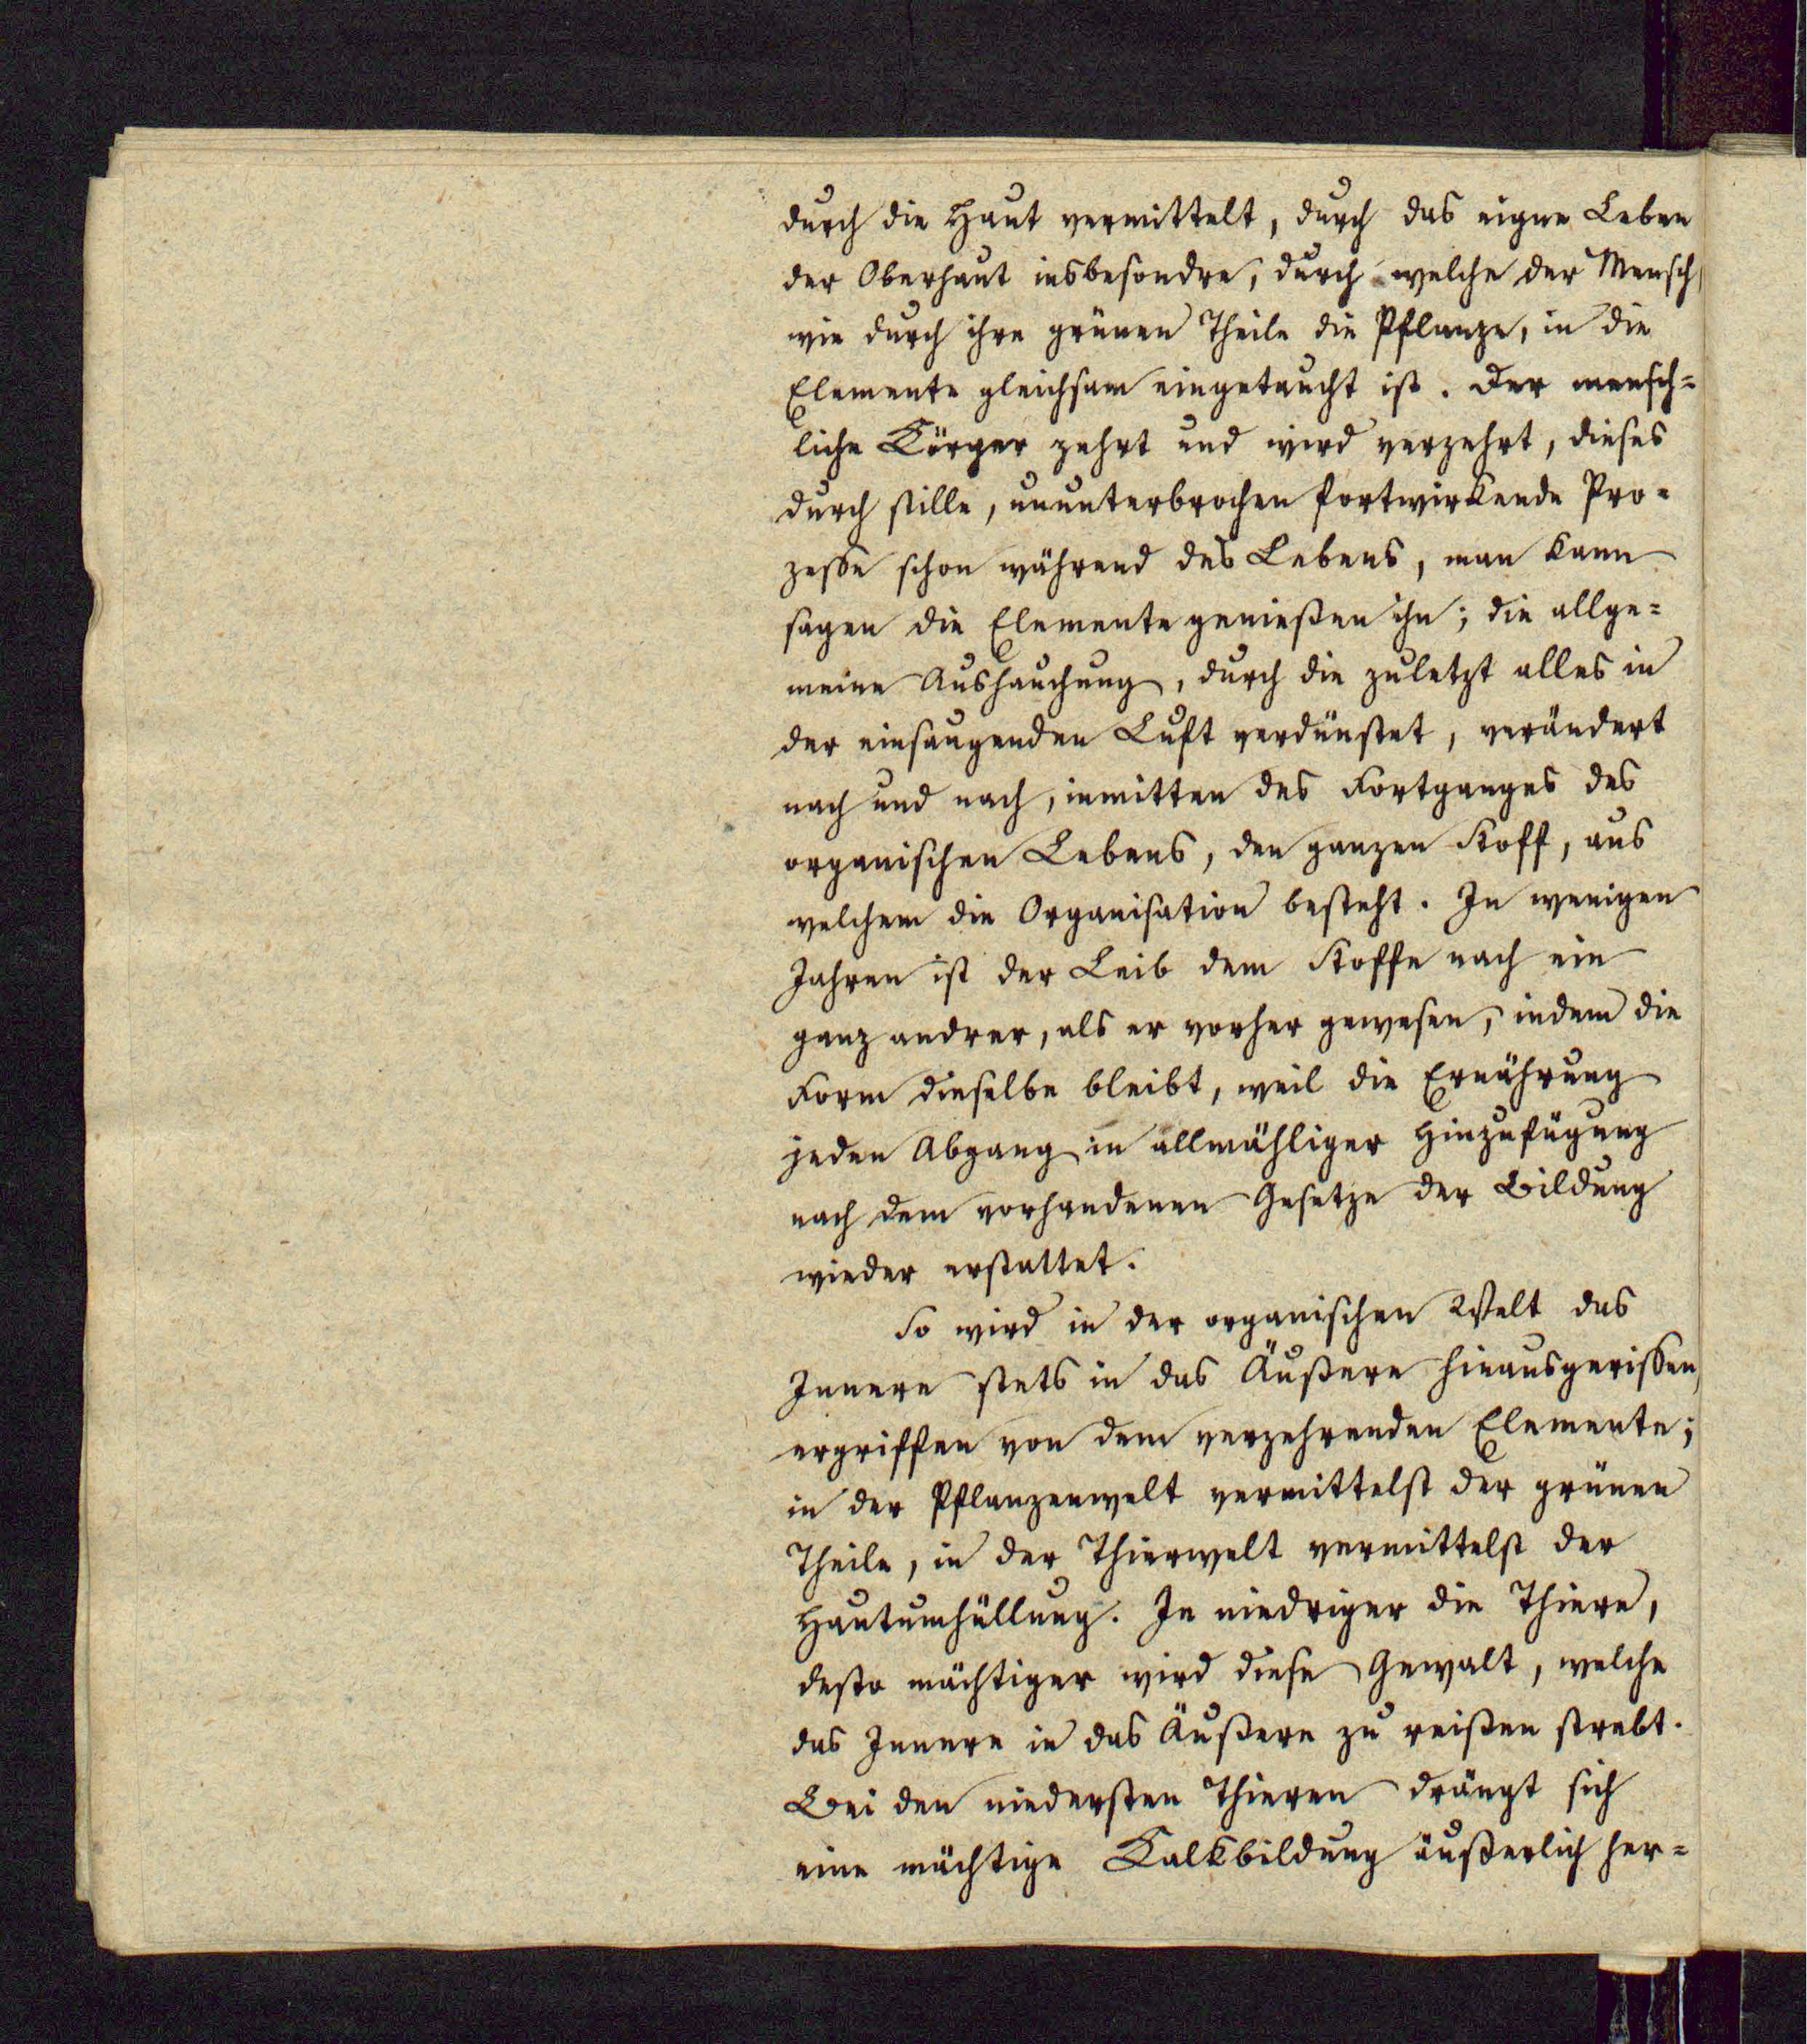 durch die Haut vermittelt, durch das eigne Leben
der Oberhaut insbesondre, durch welche der Mensch,
wie durch ihre grünen Theile die Pflanze, in die
Elemente gleichsam eingetaucht ist. Der mensch=
liche Körper zehrt und wird verzehrt, dieses
durch stille, ununterbrochen fortwirkende Pro=
zesse schon während des Lebens, man kann
sagen die Elemente genießen ihn; die allge=
meine Aushauchung, durch die zuletzt alles in
der einsaugenden Luft verdünstet, verändert
nach und nach, inmitten des Fortganges des
organischen Lebens, den ganzen Stoff, aus
welchem die Organisation besteht. In wenigen
Jahren ist der Leib dem Stoffe nach ein
ganz andrer, als er vorher gewesen, indem die
Form dieselbe bleibt, weil die Ernährung
jeden Abgang in allmähliger Hinzufügung
nach dem vorhandenen Gesetze der Bildung
wieder erstattet.
So wird in der organischen Welt das
Innere stets in das Äußere hinausgerissen,
ergriffen von dem verzehrenden Elemente;
in der Pflanzenwelt vermittelst der grünen
Theile, in der Thierwelt vermittelst der
Hautumhüllung. Je niedriger die Thiere,
desto mächtiger wird diese Gewalt, welche
das Innere in das Äußere zu reißen strebt.
Bei den niedersten Thieren drängt sich
eine mächtige Kalkbildung äußerlich her=